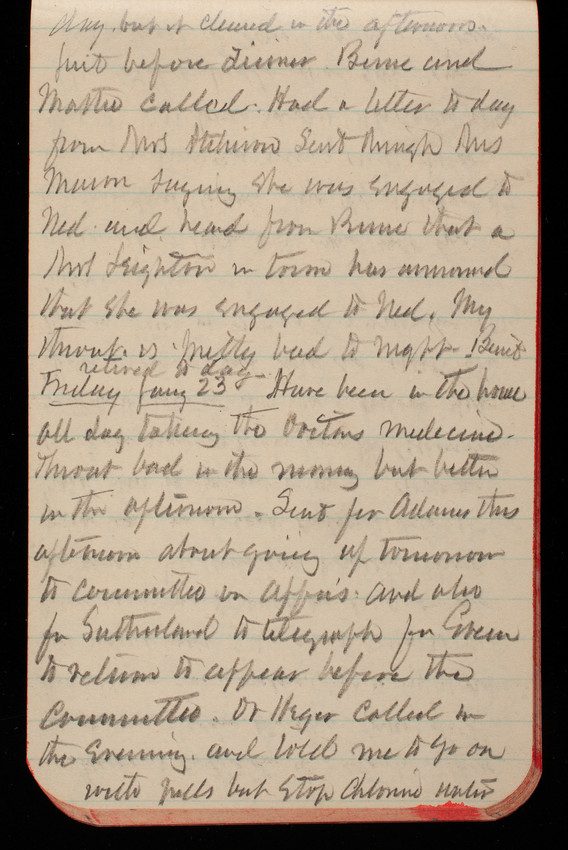 day, but it cleared in the afternoon.
just before dinner. Berne and
Mattie called. Had a letter to day
from Mrs Atchison sent through Mrs
Mason saying she was engaged to
Ned and heard from Berne that a
Mrs Leighton in town has announced
that she was engaged to Ned. My
throat is pretty bad to night. Benet
retired to day
Friday Jany 23 Have been in the house
all day taking the Doctors medicine.
Throat bad in the morning but better
in the afternoon. Sent for Adams this
afternoon about going up tomorrow
to committee on affairs and also
for Sutherland to telegraph for Green
to return to appear before the
Committee. Dr Heger called in
the Evening and told me to go on
with pills but stop Chlorine water